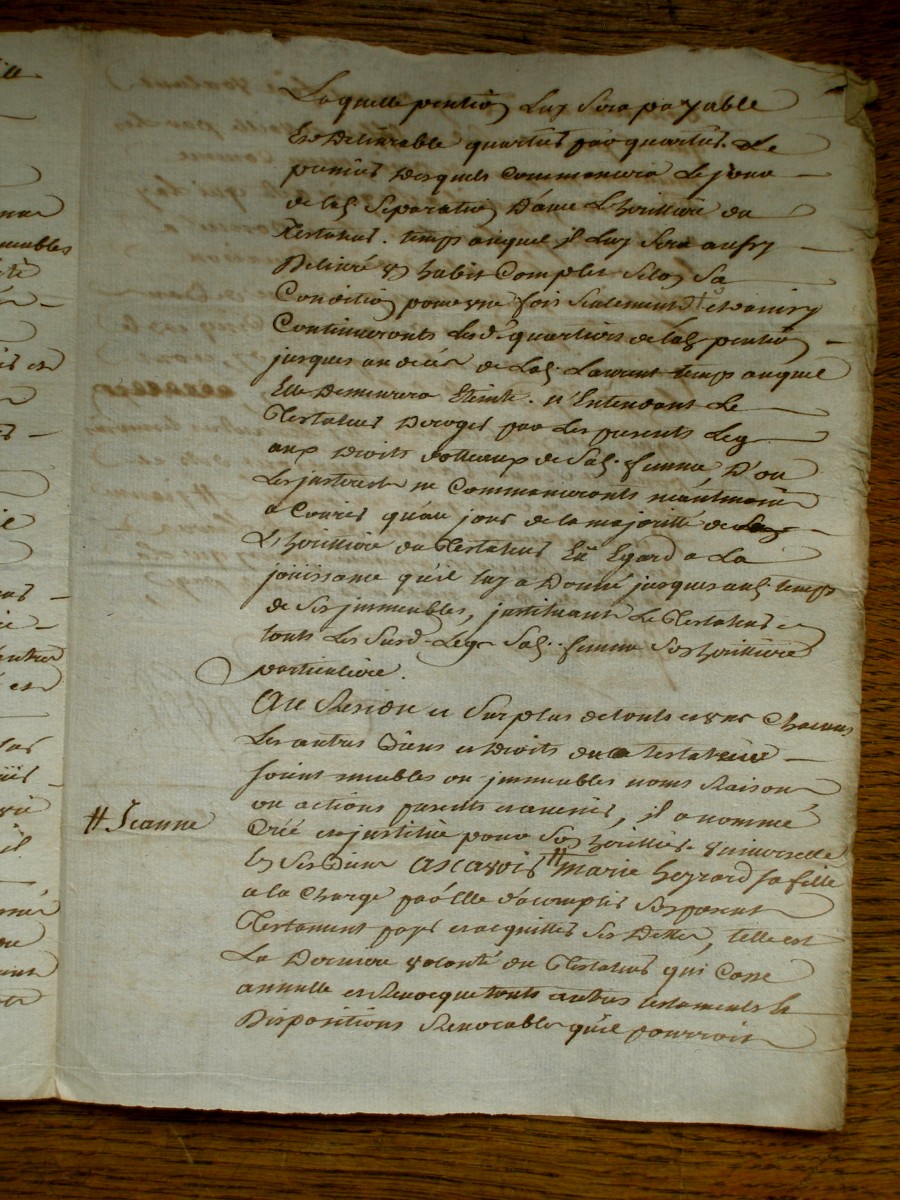 Laquelle pention Luy Sera payable
Et Delivrable quartier par quartier. Le
premier desquels Commencera Le jour
de lad. Separation D'avec L'heritiere du
Testateur. temps auquel il Luy Sera aussy
Delivré un habit Complet Selon Sa
Condition pour une fois Seulement et ainsy
Continueronts Lesd. quartiers de lad. pention
jusques au decés de Lad. Laurent temps auquel
Elle Demeurera Eteinte. n'Entendant Le
Testateur Deroger par Les presents Leg
aux Droits dotteaux de Sad. femme, D'ou
Les jnterests ne Commenceronts neantmoins
a Courir qu'au jour de la majoritté de
L'heritiere du Testateur En Egard a La
joüissance qu'il luy a Donné jusques aud. temps
de Ses jmmeubles, jnstituant Le Testateur en
touts Les Susd. Legs Sad. femme Son heritiere
particuliere.
Au Residu et Surplus de touts et uns Chacuns
Les autres Biens et Droits du testateur
soient meubles ou jmmeubles noms Raisons
ou actions presents et avenirs, il a nommé
Créé et jnstitué pour Son heritiere universelle
Ascavoir # Marie heyrard sa fille
# Jeanne
a la Charge par Elle d'acomplir Son present
Testament payer et acquitter Ses Dettes, telle est
La Derniere volonté du Testateur qui Casse
annulle et Revocque touts autres testaments &
Dispositions Revocables qu'il pourroit